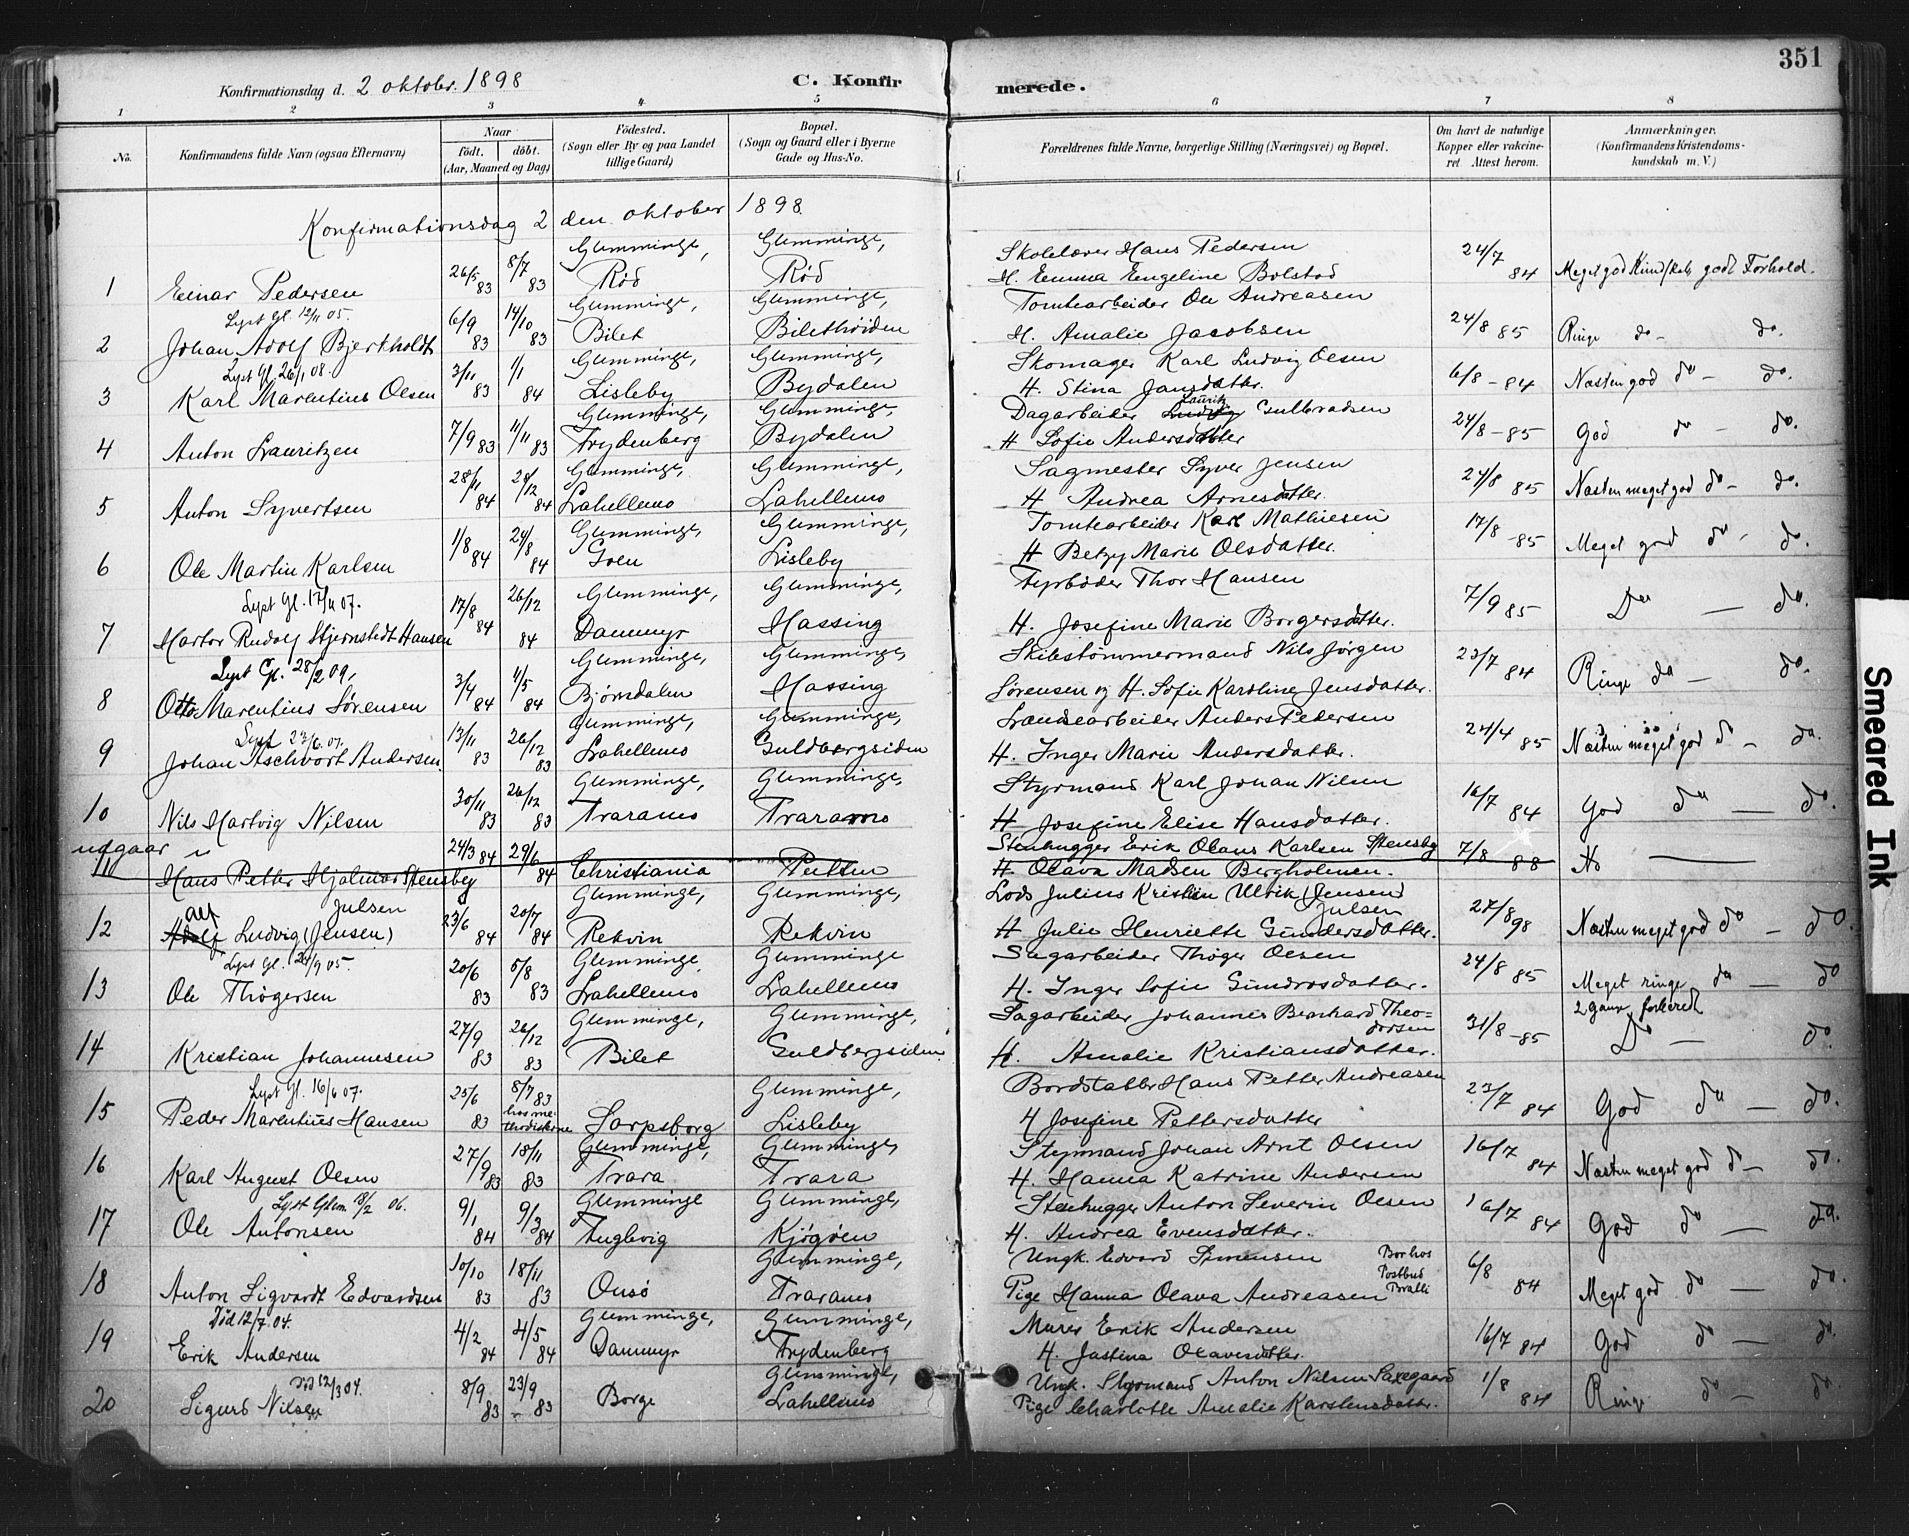 351
Konfirmationsdag d. 2 oktober. 1898
C. Konfirmerede.
1 2 3 4 5 6 7 8
No.
Konfirmandens fulde Navn (ogsaa Efternavn)
Naar
födt. döbt.
(Aar, Maaned og Dag)
Födested.
(Sogn eller By og paa Landet
tillige Gaard)
Bopæl.
(Sogn og Gaard eller i Byerne
Gade og Hus-No.
Forældrenes fulde Navne, borgerlige Stilling (Næringsvei) og Bopæl.
Om havt de naturlige
Kopper eller vakcine-
ret. Attest herom.
Anmærkninger.
(Konfirmandens Kristendoms-
kundskab m. V.)
Konfirmationsdag 2 den oktober 1898.
Glemminge, Glemminge, Skolelærer Hans Pedersen
1 Einar Pedersen 26/5 83 8/7 83 Rød Rød H. Emma Engeline Bolstad 24/7 84 Meget god Kundskab, godt Forhold.
Lyst Gl. 12/11 05. Glemminge, Glemminge, Tomtearbeider Ole Andreasen
2 Johan Adolf Bjerkholdt 6/9 83 14/10 83 Bilet Bilethøiden H. Amalie Jacobsen 24/8 85 Ringe do – do.
Lyst Gl. 26/1 08. Glemminge, Glemminge, Skomager Karl Ludvig Olsen
3 Karl Marentius Olsen 3/11 83 1/1 84 Lisleby Bydalen H. Stina Jansdatter. 6/8 – 84 Næsten god do – do.
Glemminge, Glemminge, Dagarbeider Ludvig Lauritz Gulbradsen
4 Anton Lauritzen 7/9 83 11/11 83 Frydenberg Bydalen H Sofie Andersdatter 24/8 – 85 God do – do.
Glemminge, Glemminge, Sagmester Syver Jensen
5 Anton Syvertsen 28/11 84 28/12 84 Lahellemo Lahellemo H Andrea Arnesdatter. 24/8 85 Næsten meget god do – do.
Glemminge, Glemminge, Tomtearbeider Karl Mathiesen
6 Ole Martin Karlsen 1/8 84 24/8 84 Goen Lisleby H Betzy Marie Olsdatter. 17/8 – 85 Meget god do – do.
Lyst Gl. 17/11 07. Glemminge, Glemminge, Fyrbøder Thor Hansen
7 Martor Rudolf Stjernstedt Hansen 17/8 84 26/12 84 Dammyr Hassing H. Josefine Marie Borgersdatter. 7/9 85 Do — do.
Lyst Gl. 28/2 09, Glemminge, Glemminge, Skibstømmermand Nils Jørgen
8 Otto Marentius Sørensen 3/4 84 11/5 84 Bjørnsdalen Hassing Sørensen og H. Sofie Karoline Jensdatter. 23/7 84 Ringe do — do.
Lyst 23/6. 07. Glemminge, Glemminge, Landsearbeider Anders Pedersen
9 Johan Aschvort Andersen. 13/11 83 26/12 83 Lahellemo Guldbergsiden H. Inger Marie Andersdatter. 24/4 85 Næsten meget god do – do.
Glemminge, Glemminge, Styrmand Karl Johan Nilsen
10 Nils Hartvig Nilsen 30/11 83 26/12 83 Traramo Traramo H Josefine Elise Hansdatter. 16/7 84 God do — do.
udgaar
Stenhugger Erik Olaus Karlsen Stensby
11 Hans Petter Hjalmar Stensby 24/3 84 29/6 84 Christiania Pelten H Olava Madsen Bergholmen. 7/8 88 No
Glemminge, Glemminge, Lods Julius Kristian Ulrik (Jensen)
Alf Julsen Julsen
12 Adolf Ludvig (Jensen) 23/6 84 20/7 84 Rekvin Rekvin H Julie Henriette Gundersdatter. 27/8 98 Næsten meget god do – do
Lyst Gl. 24/9 05. Glemminge Glemminge Sagarbeider Thøger Olsen
13 Ole Thøgersen 20/6 83 5/8 83 Lahellemo Lahellemo H. Inger Sofie Gundrosdatter. 24/8 85 Meget ringe do — do
2 Gange forberedt
Glemminge, Glemminge, Sagarbeider Johannes Bernhard Theo-
dorsen
14 Kristian Johannesen 27/9 83 26/12 83 Bilet Guldbergsiden H. Amalie Kristiansdatter. 31/8 – 85 Do — do.
Lyst Gl. 16/6 07. Glemminge, Bordstabler Hans Petter Andreasen
15 Peder Marentius Hansen 25/6 83 8/7 83 hos me-
thodisterne Sarpsborg Lisleby H Josefine Pettersdatter 23/7 84 God do — do.
Glemminge, Glemminge, Styrmand Johan Arnt Olsen
16 Karl August Olsen 27/9 83 18/11 83 Trara Trara H. Hanna Katrine Andersen 16/7 84 Næsten meget god do – do.
Lyst Glem. 18/2 06. Glemminge Glemminge, Stenhugger Anton Severin Olsen
17 Ole Antonsen 9/1 84 9/3 84 Tuglevig Kjøgøen H. Andrea Evensdatter. 16/7 84 God do — do.
Glemminge, Ungk. Edvard Simensen Bor hos
Postbud
18 Anton Sigvardt Edvardsen 10/10 83 18/11 83 Onsø Traramo Pige Hanna Olava Andreasen 6/8 84 Meget god do — do.
Död 12/7. 04. Glemminge, Glemminge, Murer Erik Andersen
19 Erik Andersen 4/2 84 4/5 84 Dammyr Frydenberg H. Jastina Olavesdatter. 16/7 84 God do — do.
död 12/3 04. Glemminge, Ungk. Styrmand Anton Nilsen Saxegaard
20 Sigurd Nilsen 8/9 83 23/9 83 Borge Lahellemo Pige Charlotte Amalie Karstensdatter. 1/8 84 Ringe do – do
Smeared Ink